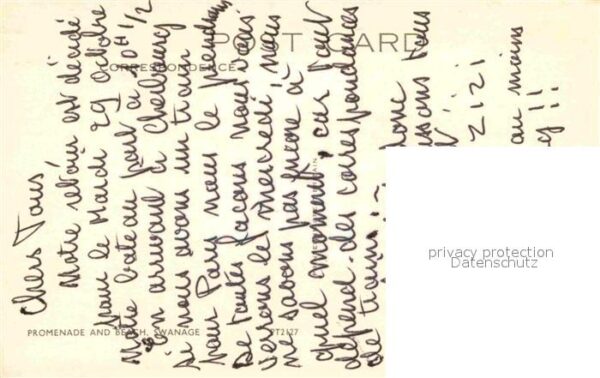 POST CARD
CORRESPONDENCE
Chers Tous,
Notre retour est décidé
pour le Mardi 29 Octobre
Notre bateau part à 10H 1/2
En arrivant à Cherbourg
si nous avons un train
pour Paris nous le prendrons
De toutes façons nous vous
verrons le mercredi, nous
ne savons pas encore à
quel moment, car tout
dépend des correspondances
de trains
donc
tous
Z!Z!
au moins
!!
PROMENADE AND BEACH, SWANAGE
PT2127
privacy protection
Datenschutz